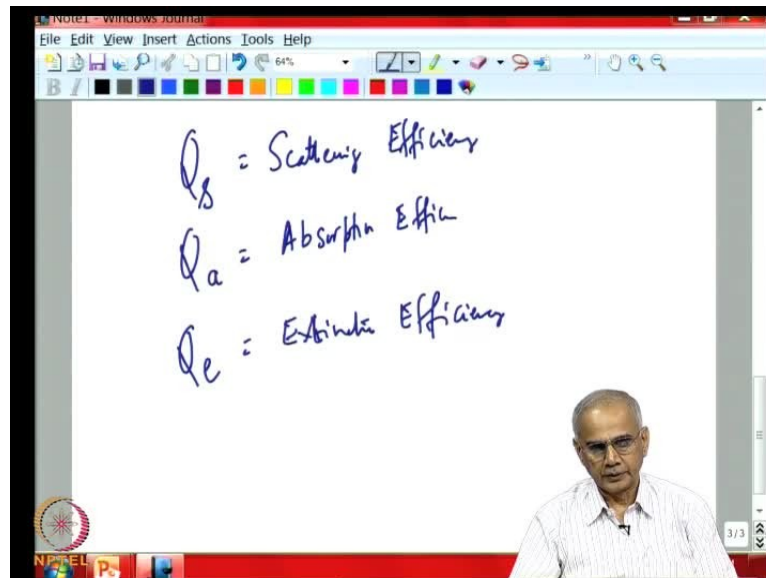 Note1 - Windows Journal
File Edit View Insert Actions Tools Help
64%
B I
Qs = Scattering Efficiency
Qa = Absorption Effici
Qe = Extinction Efficiency
3/3
NPTEL